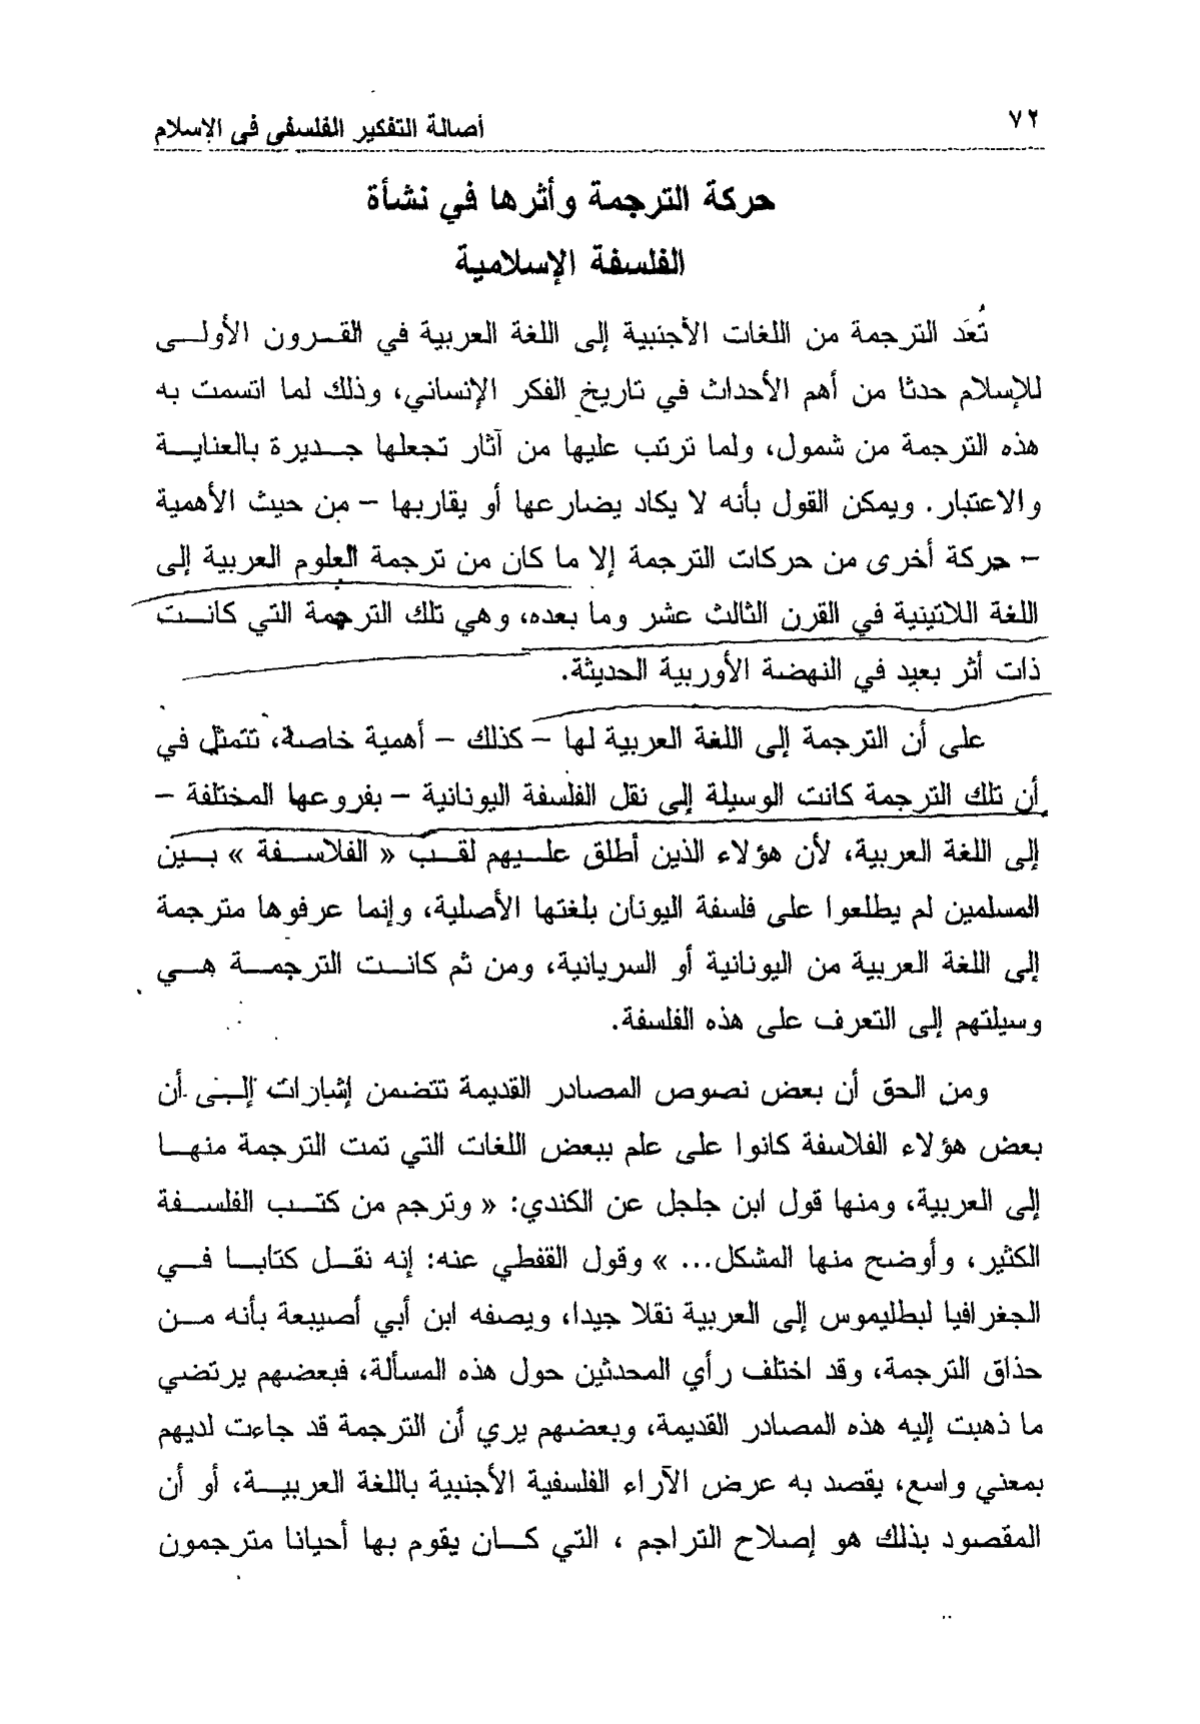 ٧٢
أصالة التفكير الفلسفى فى الإسلام
حركة الترجمة وأثرها في نشأة
الفلسفة الإسلامية
تُعَد الترجمة من اللغات الأجنبية إلى اللغة العربية في القرون الأولى
للإسلام حدثا من أهم الأحداث في تاريخ الفكر الإنساني، وذلك لما اتسمت به
هذه الترجمة من شمول، ولما ترتب عليها من آثار تجعلها جديرة بالعناية
والاعتبار. ويمكن القول بأنه لا يكاد يضارعها أو يقاربها – من حيث الأهمية
– حركة أخرى من حركات الترجمة إلا ما كان من ترجمة العلوم العربية إلى
اللغة اللاتينية في القرن الثالث عشر وما بعده، وهي تلك الترجمة التي كانت
ذات أثر بعيد في النهضة الأوربية الحديثة.
على أن الترجمة إلى اللغة العربية لها – كذلك – أهمية خاصة، تتمثل في
أن تلك الترجمة كانت الوسيلة إلى نقل الفلسفة اليونانية – بفروعها المختلفة –
إلى اللغة العربية، لأن هؤلاء الذين أطلق عليهم لقب « الفلاسفة » بين
المسلمين لم يطلعوا على فلسفة اليونان بلغتها الأصلية، وإنما عرفوها مترجمة
إلى اللغة العربية من اليونانية أو السريانية، ومن ثم كانت الترجمة هي
وسيلتهم إلى التعرف على هذه الفلسفة.
ومن الحق أن بعض نصوص المصادر القديمة تتضمن إشارات إلى أن
بعض هؤلاء الفلاسفة كانوا على علم ببعض اللغات التي تمت الترجمة منها
إلى العربية، ومنها قول ابن جلجل عن الكندي: « وترجم من كتب الفلسفة
الكثير، وأوضح منها المشكل... » وقول القفطي عنه: إنه نقل كتابا في
الجغرافيا لبطليموس إلى العربية نقلا جيدا، ويصفه ابن أبي أصيبعة بأنه من
حذاق الترجمة، وقد اختلف رأي المحدثين حول هذه المسألة، فبعضهم يرتضي
ما ذهبت إليه هذه المصادر القديمة، وبعضهم يري أن الترجمة قد جاءت لديهم
بمعني واسع، يقصد به عرض الآراء الفلسفية الأجنبية باللغة العربية، أو أن
المقصود بذلك هو إصلاح التراجم ، التي كان يقوم بها أحيانا مترجمون